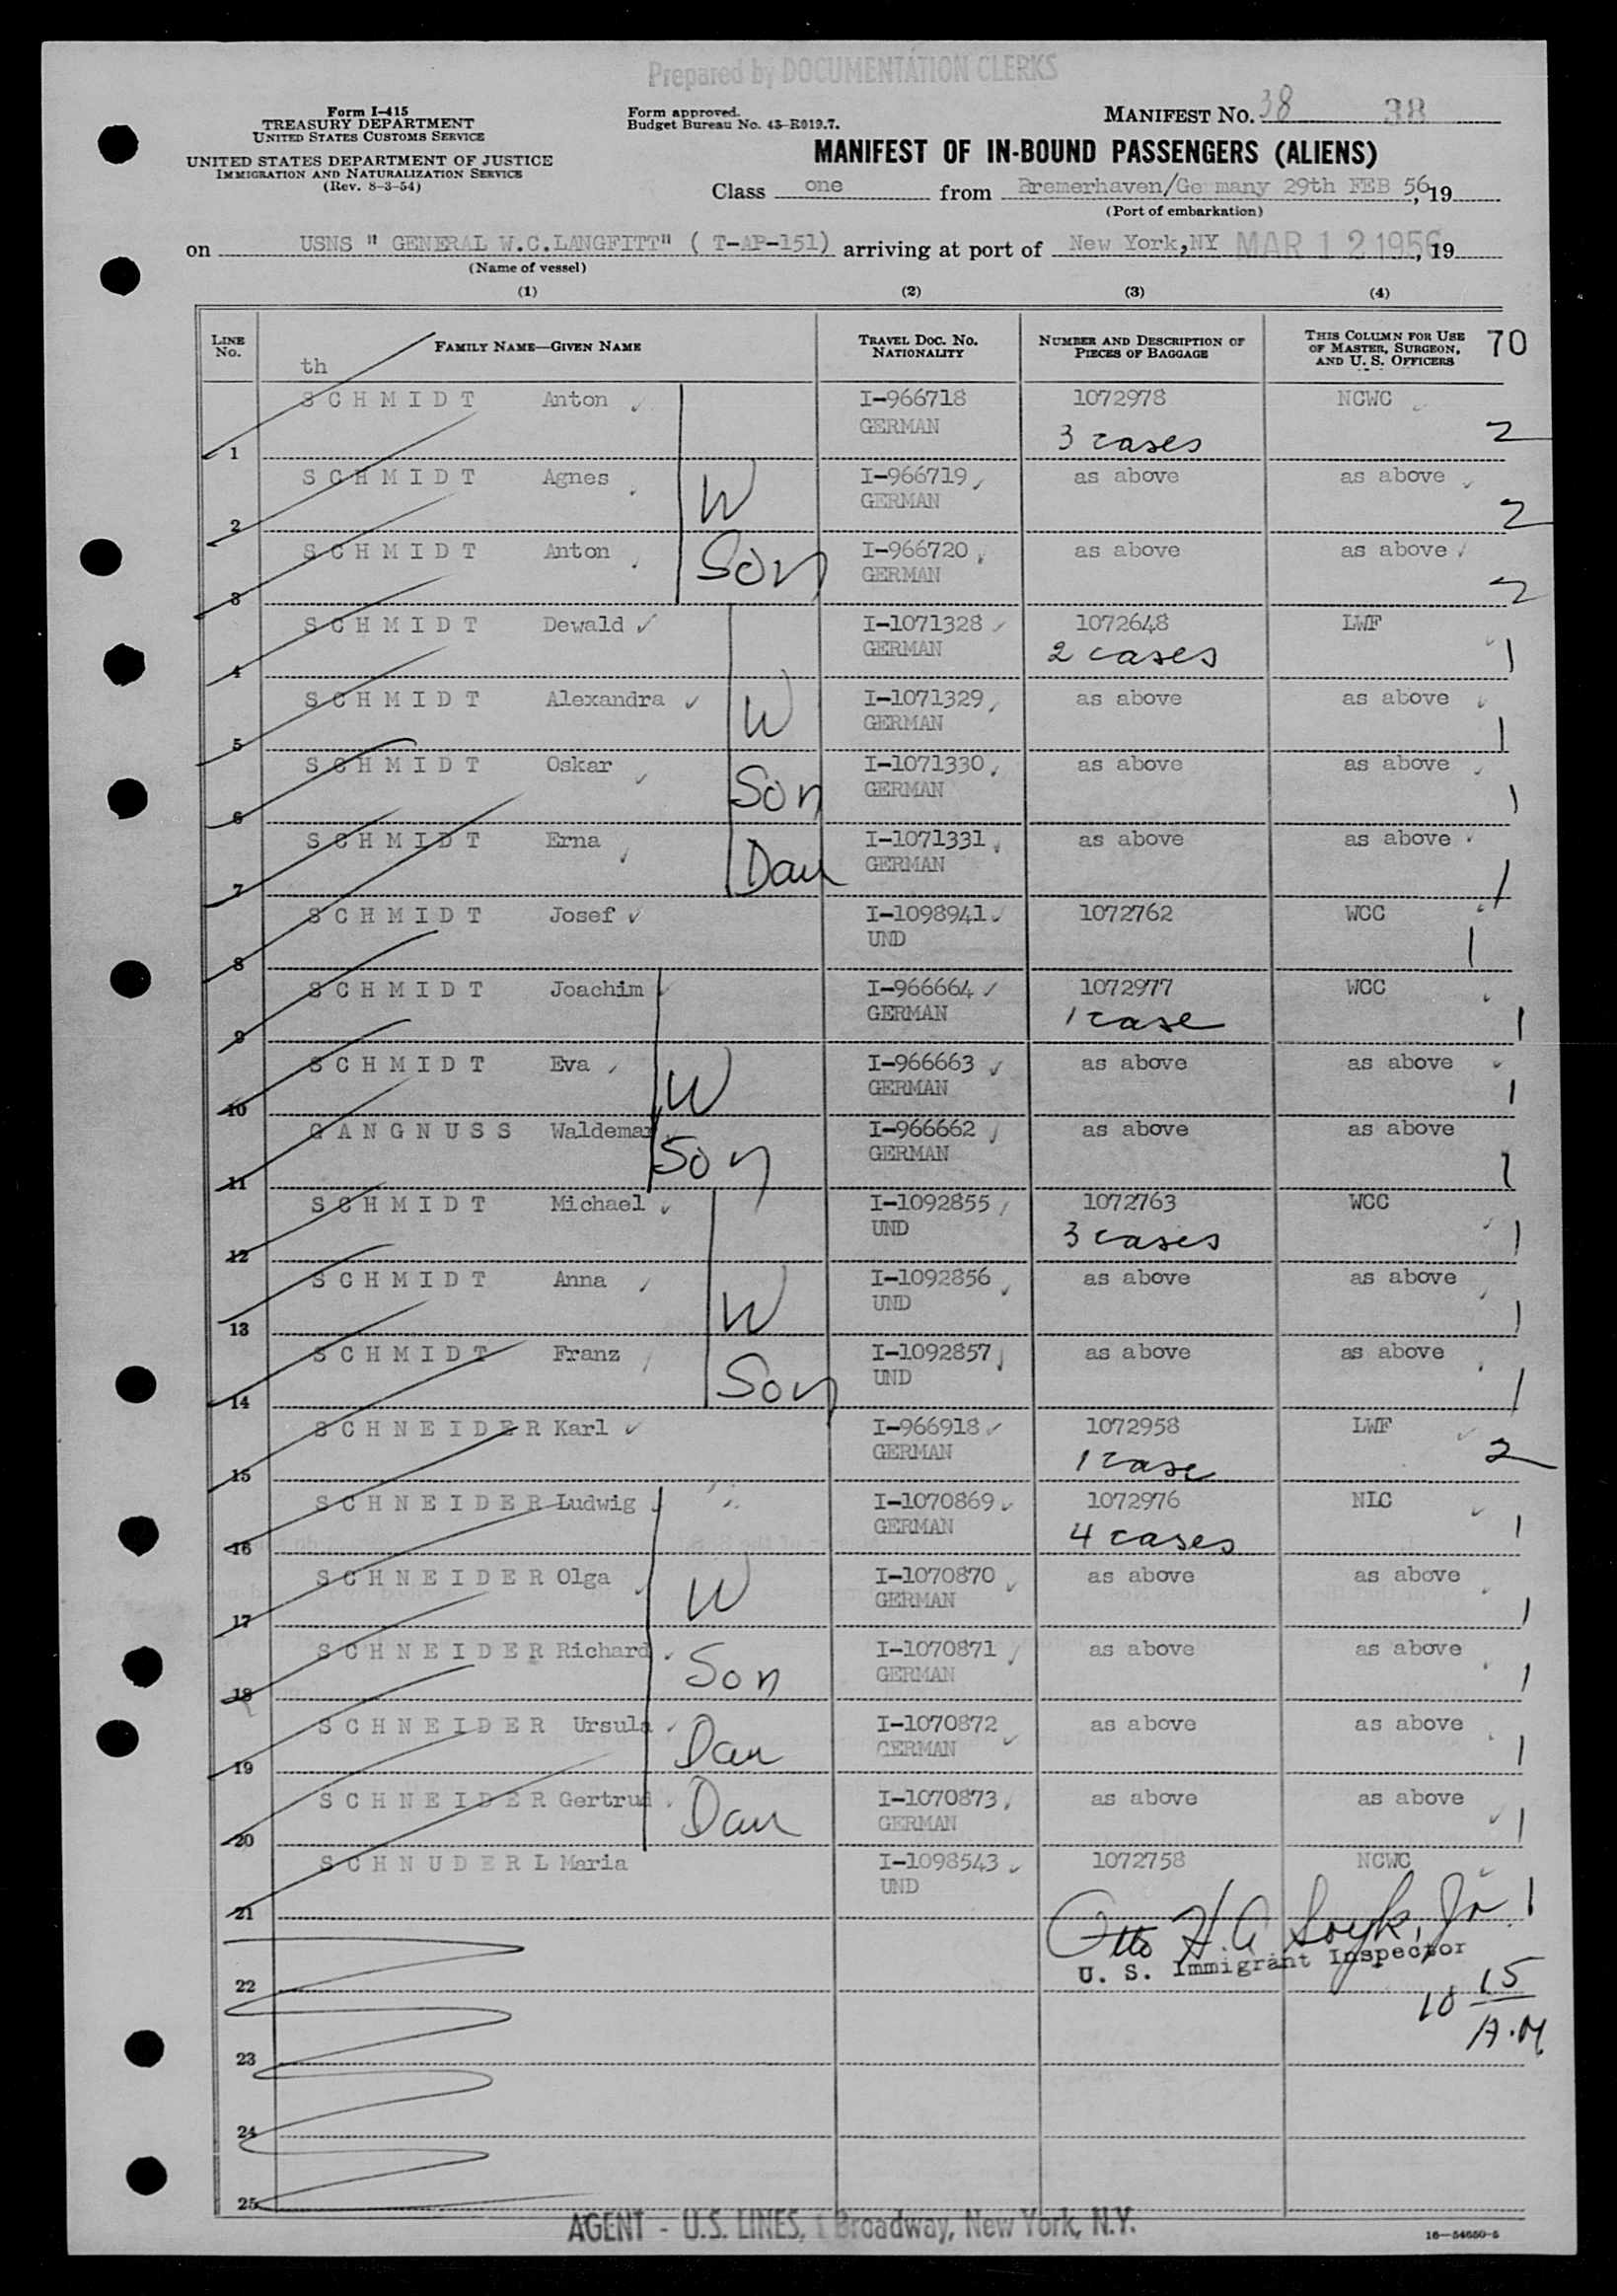 Prepared by DOCUMENTATION CLERKS
Form I-415
TREASURY DEPARTMENT
UNITED STATES CUSTOMS SERVICE
UNITED STATES DEPARTMENT OF JUSTICE
IMMIGRATION AND NATURALIZATION SERVICE
(Rev. 8-3-54)
Form approved.
Budget Bureau No. 43-R019.7.
MANIFEST NO. 38 38
MANIFEST OF IN-BOUND PASSENGERS (ALIENS)
Class one from Bremerhaven/Germany 29th FEB 56, 19
(Port of embarkation)
on USNS " GENERAL W.C.LANGFITT" ( T-AP-151) arriving at port of New York,NY MAR 12 1956, 19
(Name of vessel)
(1) (2) (3) (4)
LINE No. FAMILY NAME—GIVEN NAME TRAVEL DOC. NO. NATIONALITY NUMBER AND DESCRIPTION OF PIECES OF BAGGAGE THIS COLUMN FOR USE OF MASTER, SURGEON, AND U. S. OFFICERS 70
th
SCHMIDT Anton I-966718 1072978 NCWC
1 GERMAN 3 cases 2
SCHMIDT Agnes W I-966719 as above as above
2 GERMAN 2
SCHMIDT Anton Son I-966720 as above as above
3 GERMAN 2
SCHMIDT Dewald I-1071328 1072648 LWF
4 GERMAN 2 cases 1
SCHMIDT Alexandra W I-1071329 as above as above
5 GERMAN 1
SCHMIDT Oskar Son I-1071330 as above as above
6 GERMAN 1
SCHMIDT Erna Dau I-1071331 as above as above
7 GERMAN 1
SCHMIDT Josef I-1098941 1072762 WCC
8 UND 1
SCHMIDT Joachim I-966664 1072977 WCC
9 GERMAN 1 case 1
SCHMIDT Eva W I-966663 as above as above
10 GERMAN 1
GANGNUSS Waldemar Son I-966662 as above as above
11 GERMAN 1
SCHMIDT Michael I-1092855 1072763 WCC
12 UND 3 cases 1
SCHMIDT Anna W I-1092856 as above as above
13 UND 1
SCHMIDT Franz Son I-1092857 as above as above
14 UND 1
SCHNEIDER Karl I-966918 1072958 LWF
15 GERMAN 1 case 2
SCHNEIDER Ludwig I-1070869 1072976 NLC
16 GERMAN 4 cases 1
SCHNEIDER Olga W I-1070870 as above as above
17 GERMAN 1
SCHNEIDER Richard Son I-1070871 as above as above
18 GERMAN 1
SCHNEIDER Ursula Dau I-1070872 as above as above
19 GERMAN 1
SCHNEIDER Gertrud Dau I-1070873 as above as above
20 GERMAN 1
SCHNUDERL Maria I-1098543 1072758 NCWC
21 UND 1
Otto H. A Soyk, Jr.
U. S. Immigrant Inspector
22
10 15
A.M
23
24
25
AGENT - U.S. LINES, 1 Broadway, New York, N.Y.
16—54650-5